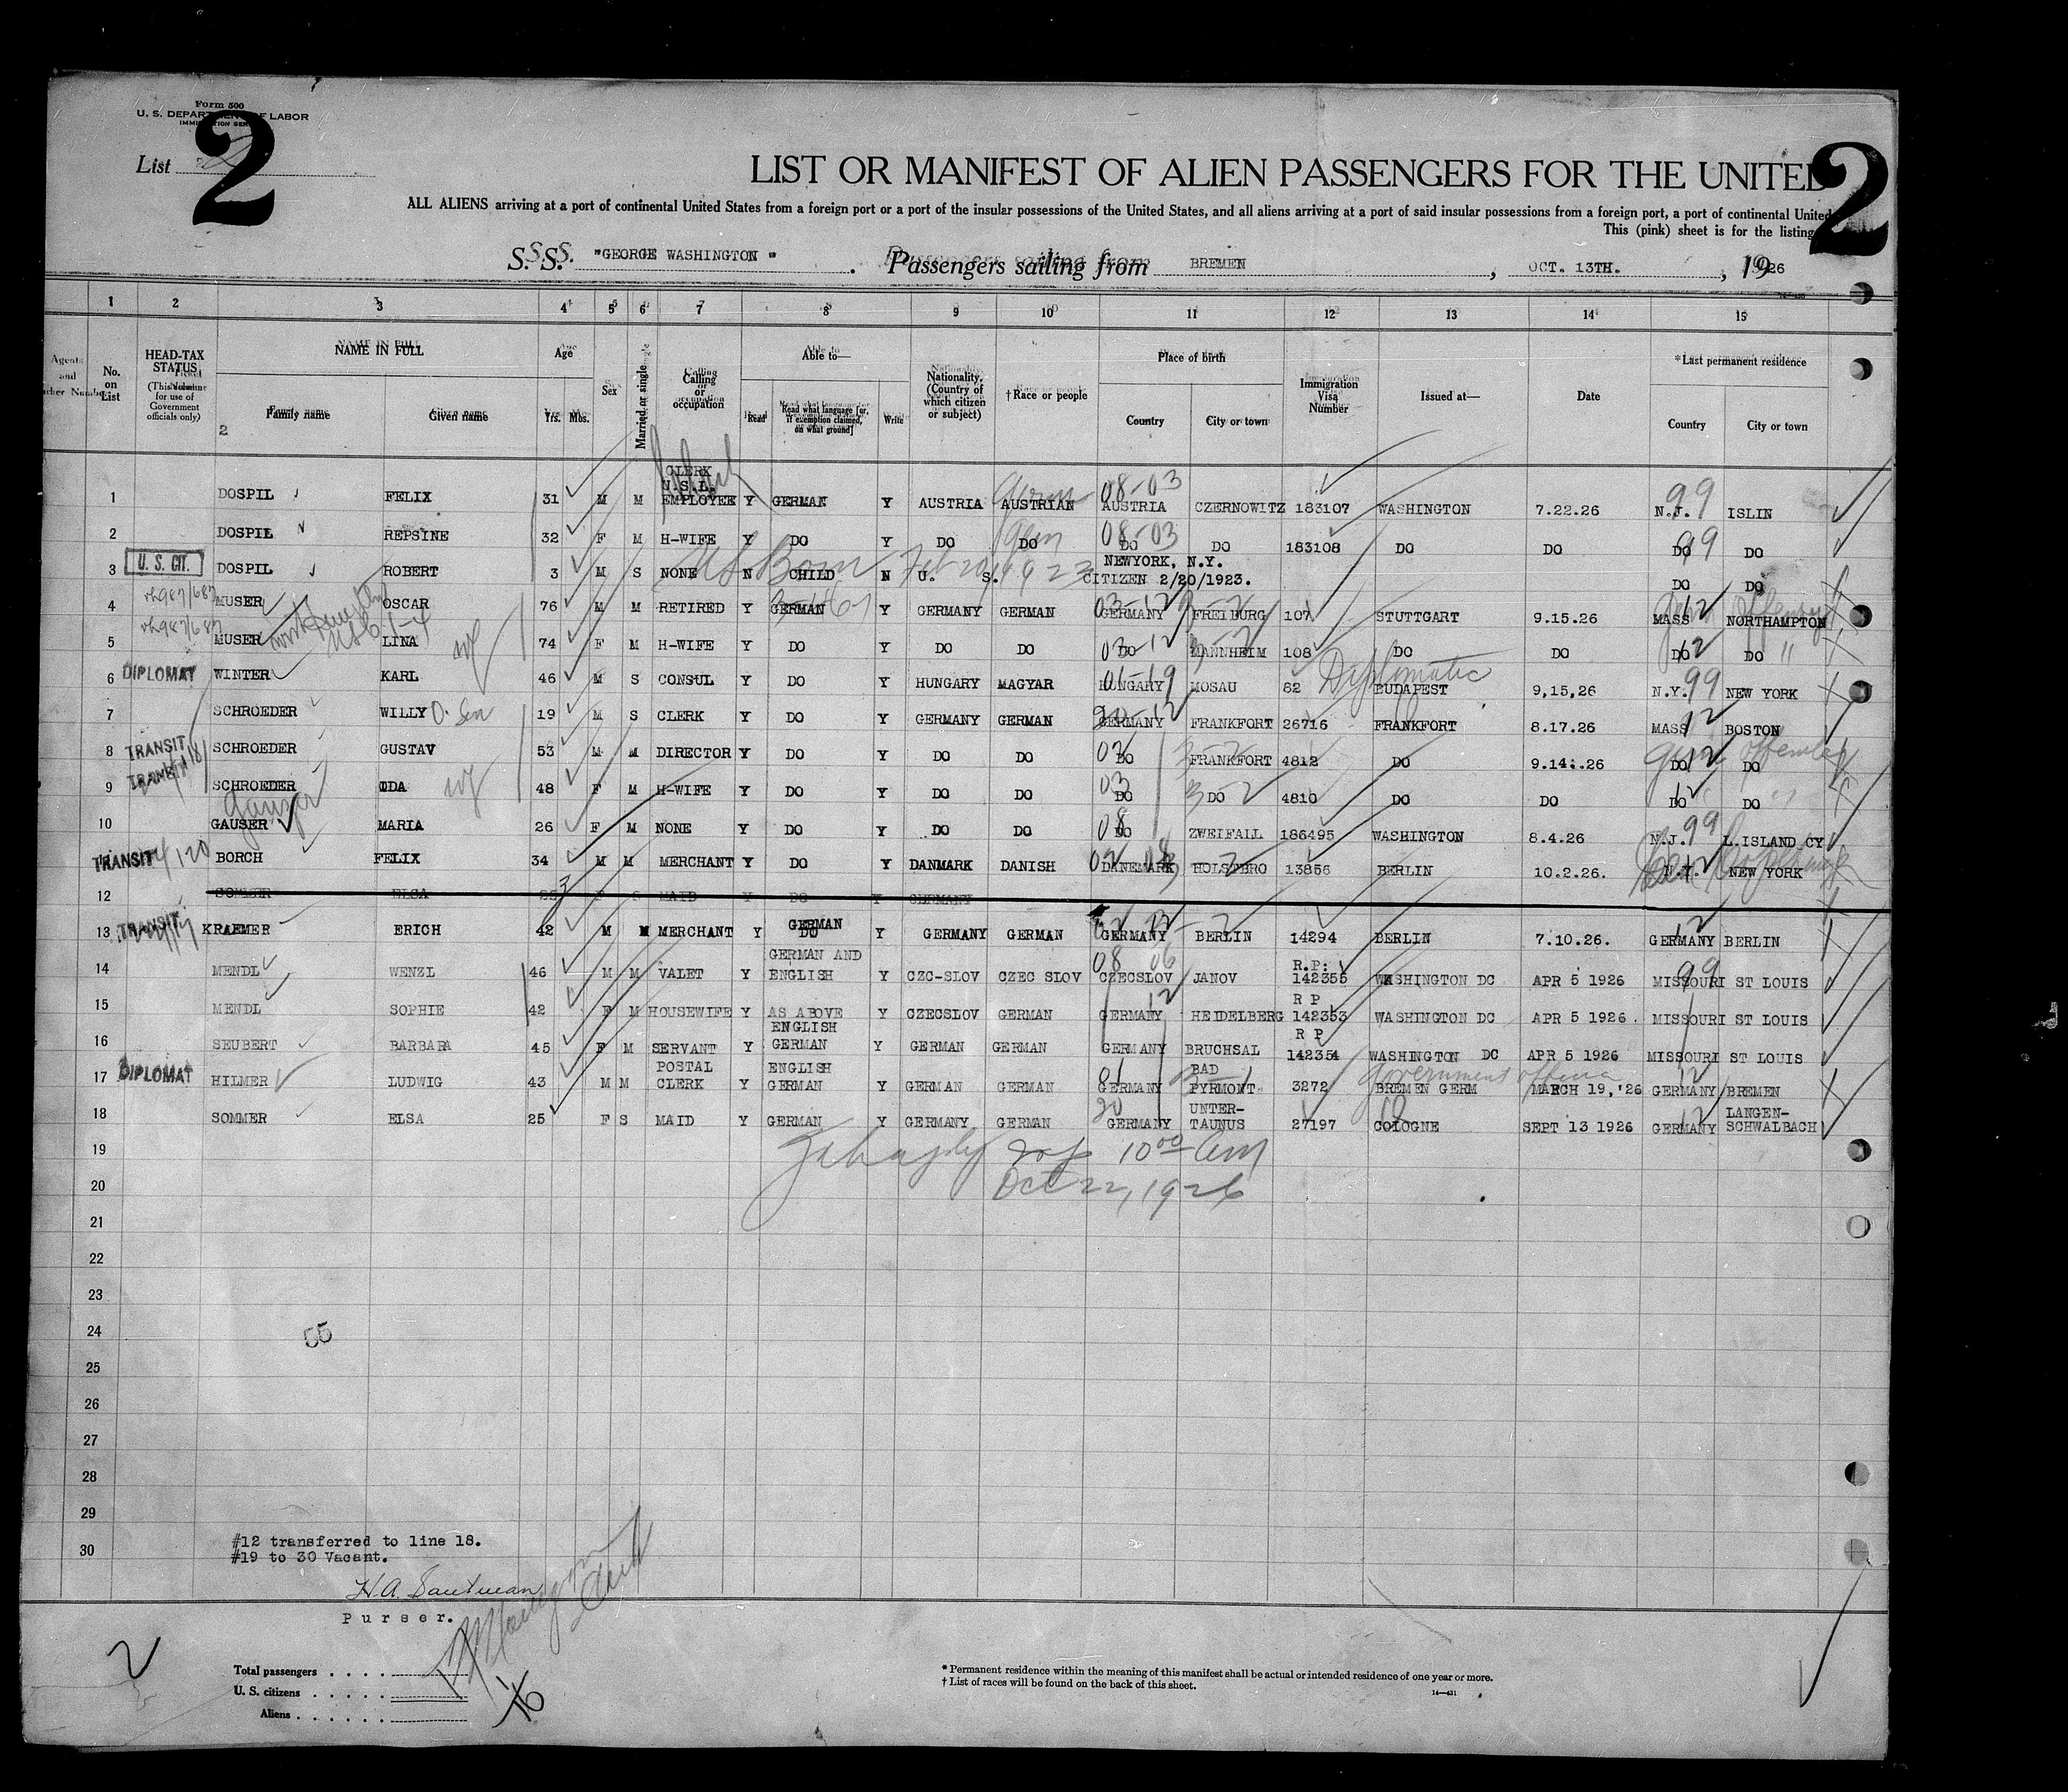 Form 500
U. S. DEPARTMENT OF LABOR
IMMIGRATION SERVICE
2
2
List
LIST OR MANIFEST OF ALIEN PASSENGERS FOR THE UNITED
ALL ALIENS arriving at a port of continental United States from a foreign port or a port of the insular possessions of the United States, and all aliens arriving at a port of said insular possessions from a foreign port, a port of continental United
This (pink) sheet is for the listing
S. S. "GEORGE WASHINGTON" Passengers sailing from BREMEN, OCT. 13TH., 1926
1 2 3 4 5 6 7 8 9 10 11 12 13 14 15
No. on List HEAD-TAX STATUS (This column for use of Government officials only) NAME IN FULL Age Sex Married or single Calling or occupation Able to— Nationality. (Country of which citizen or subject) †Race or people Place of birth Immigration Visa Number Issued at— Date *Last permanent residence
Family name Given name Yrs. Mos. Read Read what language [or, if exemption claimed, on what ground] Write Country City or town Country City or town
2
1 DOSPIL FELIX 31 M M CLERK U.S.L. EMPLOYEE Y GERMAN Y AUSTRIA AUSTRIAN Germ 08-03 AUSTRIA CZERNOWITZ 183107 WASHINGTON 7.22.26 N.J. 99 ISLIN
2 DOSPIL REPSINE 32 F M H-WIFE Y DO Y DO DO Germ 08-03 DO DO 183108 DO DO DO 99 DO
3 U. S. CIT. DOSPIL ROBERT 3 M S NONE N CHILD N U. S. US Born Feb 20 1923 NEWYORK, N.Y. CITIZEN 2/20/1923. DO DO
4 MUSER OSCAR 76 M M RETIRED Y GERMAN Y GERMANY GERMAN 03-12 GERMANY FREIBURG 107 STUTTGART 9.15.26 MASS 12 NORTHAMPTON
5 MUSER LINA 74 F M H-WIFE Y DO Y DO DO 03-12 DO MANNHEIM 108 DO DO DO 12 DO "
6 DIPLOMAT WINTER KARL 46 M S CONSUL Y DO Y HUNGARY MAGYAR 01-19 HUNGARY MOSAU 82 Diplomatic BUDAPEST 9,15,26 N.Y. 99 NEW YORK
7 SCHROEDER WILLY 19 M S CLERK Y DO Y GERMANY GERMAN GERMANY FRANKFORT 26716 FRANKFORT 8.17.26 MASS 12 BOSTON
8 TRANSIT SCHROEDER GUSTAV 53 M M DIRECTOR Y DO Y DO DO DO FRANKFORT 4812 DO 9.14.26 DO 12 DO
9 TRANSIT SCHROEDER IDA 48 F M H-WIFE Y DO Y DO DO 03 DO DO 4810 DO DO DO 12 DO
10 GAUSER MARIA 26 F M NONE Y DO Y DO DO 08 DO ZWEIFALL 186495 WASHINGTON 8.4.26 N.J. 99 L.ISLAND CY
TRANSIT BORCH FELIX 34 M M MERCHANT Y DO Y DANMARK DANISH DANEMARK HOLSTBRO 13856 BERLIN 10.2.26. N.Y. NEW YORK
12 SOMMER ELSA 25 F S MAID Y DO Y GERMANY
13 TRANSIT KRAEMER ERICH 42 M M MERCHANT Y GERMAN DO Y GERMANY GERMAN GERMANY BERLIN 14294 BERLIN 7.10.26. GERMANY 12 BERLIN
14 MENDL WENZL 46 M M VALET Y GERMAN AND ENGLISH Y CZC-SLOV CZEC SLOV 08 06 CZECSLOV JANOV R.P: 142355 WASHINGTON DC APR 5 1926 MISSOURI 99 ST LOUIS
15 MENDL SOPHIE 42 F M HOUSEWIFE Y AS ABOVE Y CZECSLOV GERMAN 12 GERMANY HEIDELBERG R P 142353 WASHINGTON DC APR 5 1926. MISSOURI ST LOUIS
16 SEUBERT BARBARA 45 F M SERVANT Y ENGLISH GERMAN Y GERMAN GERMAN GERMANY BRUCHSAL R P 142354 WASHINGTON DC APR 5 1926 MISSOURI ST LOUIS
17 DIPLOMAT HILMER LUDWIG 43 M M POSTAL CLERK Y ENGLISH GERMAN Y GERMAN GERMAN GERMANY BAD PYRMONT 3272 Government BREMEN GERM MARCH 19, '26 GERMANY 12 BREMEN
18 SOMMER ELSA 25 F S MAID Y GERMAN Y GERMANY GERMAN GERMANY UNTER-TAUNUS 27197 COLOGNE SEPT 13 1926 GERMANY 12 LANGEN-SCHWALBACH
19 10 00 am
20 Oct 22, 1926
21
22
23
24 55
25
26
27
28
29
30
#12 transferred to line 18.
#19 to 30 Vacant.
Purser.
2
Total passengers
U. S. citizens
Aliens
16
* Permanent residence within the meaning of this manifest shall be actual or intended residence of one year or more.
† List of races will be found on the back of this sheet.
14—431